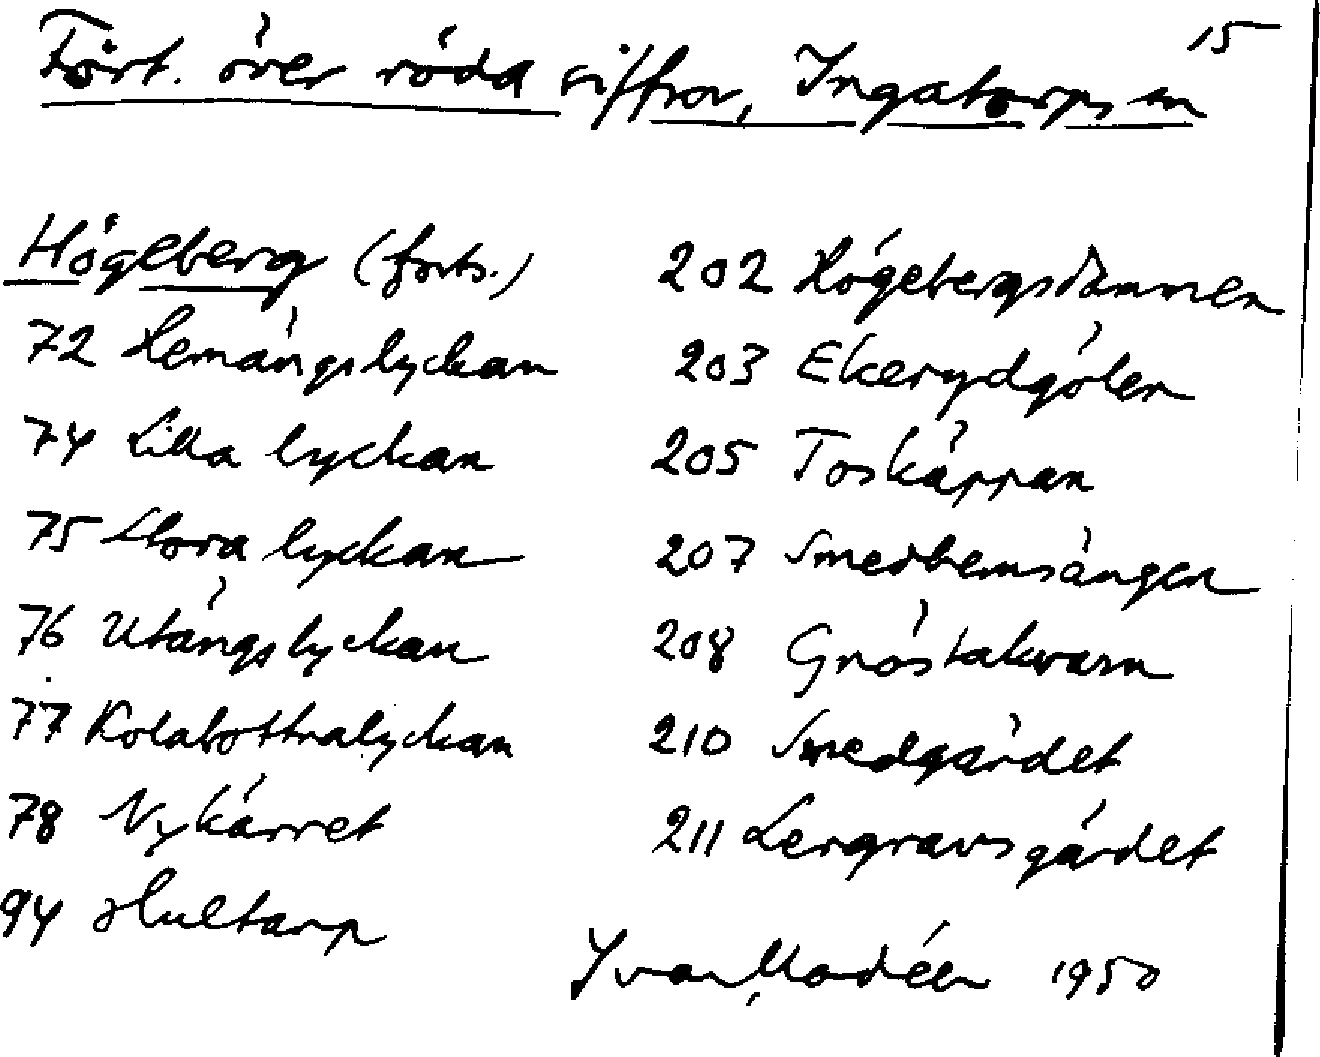 15
Fört. över röda siffror, Ingatorps sn
Högeberg (forts.)
72 Hemängslyckan
74 Lilla lyckan
75 Stora lyckan
76 Utängslyckan
77 Kolabottnalyckan
78 Nykärret
94 Hultarp
202 Högebergsdammen
203 Ekerydgölen
205 Toskärran
207 Smedhemsängen
208 Gnöstakvarn
210 Smedgärdet
211 Lergravsgärdet
Ivar Modéer 1950